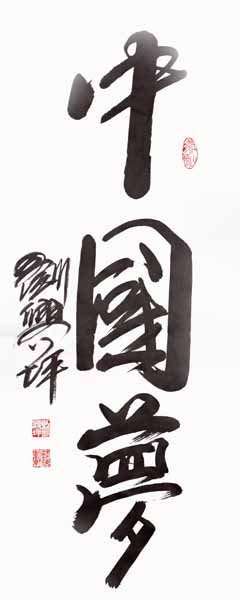 中國夢
劉興坪